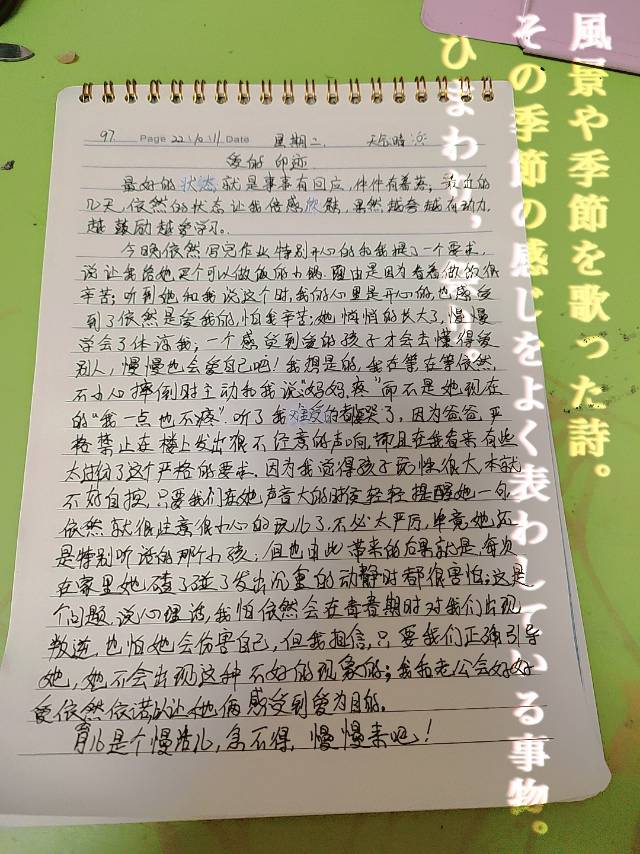 97. Page 22.10.11 Date 星期二 天气晴
爱的印迹
最好的状态就是事事有回应,件件有着落;最近的
几天,依然的状态让我倍感欣慰,果然越夸越有动力,
越鼓励越爱学习。
今晚依然写完作业特别开心的和我提了一个要求,
说让我给她买个可以做饭的小锅,理由是因为看着做饭很
辛苦;听到她和我说这个时,我的心里是开心的,也感受
到了依然是爱我的,怕我辛苦;她悄悄的长大了,慢慢
学会了体谅我,一个感受到爱的孩子才会去懂得爱
别人,慢慢也会爱自己吧!我想是的,我在等,在等依然,
不小心摔倒时主动和我说:“妈妈,疼”而不是她现在
的“我一点也不疼”.听了我难受的都哭了,因为爸爸,严
格禁止在楼上发出很不经意的声响,而且在我看来有些
太过份了这个严格的要求,因为我觉得孩子玩性很大,本就
不好自控,只要我们在她声音大的时候轻轻提醒她一句,
依然就很注意很小心的玩儿了,不必太严厉,毕竟她还
是特别听话的那个小孩;但也由此带来的后果就是,每次
在家里她磕了碰了发出沉重的动静时都很害怕;这是
个问题,说心里话,我怕依然会在青春期时对我们出现
叛逆,也怕她会伤害自己,但我相信,只要我们正确引导
她,她不会出现这种不好的现象的;我和老公会好好
爱依然依诺以让她俩感受到爱为目的。
育儿是个慢活儿,急不得,慢慢来吧!
風景や季節を歌った詩。
その季節の感じをよく表わしている事物。
ひまわり,